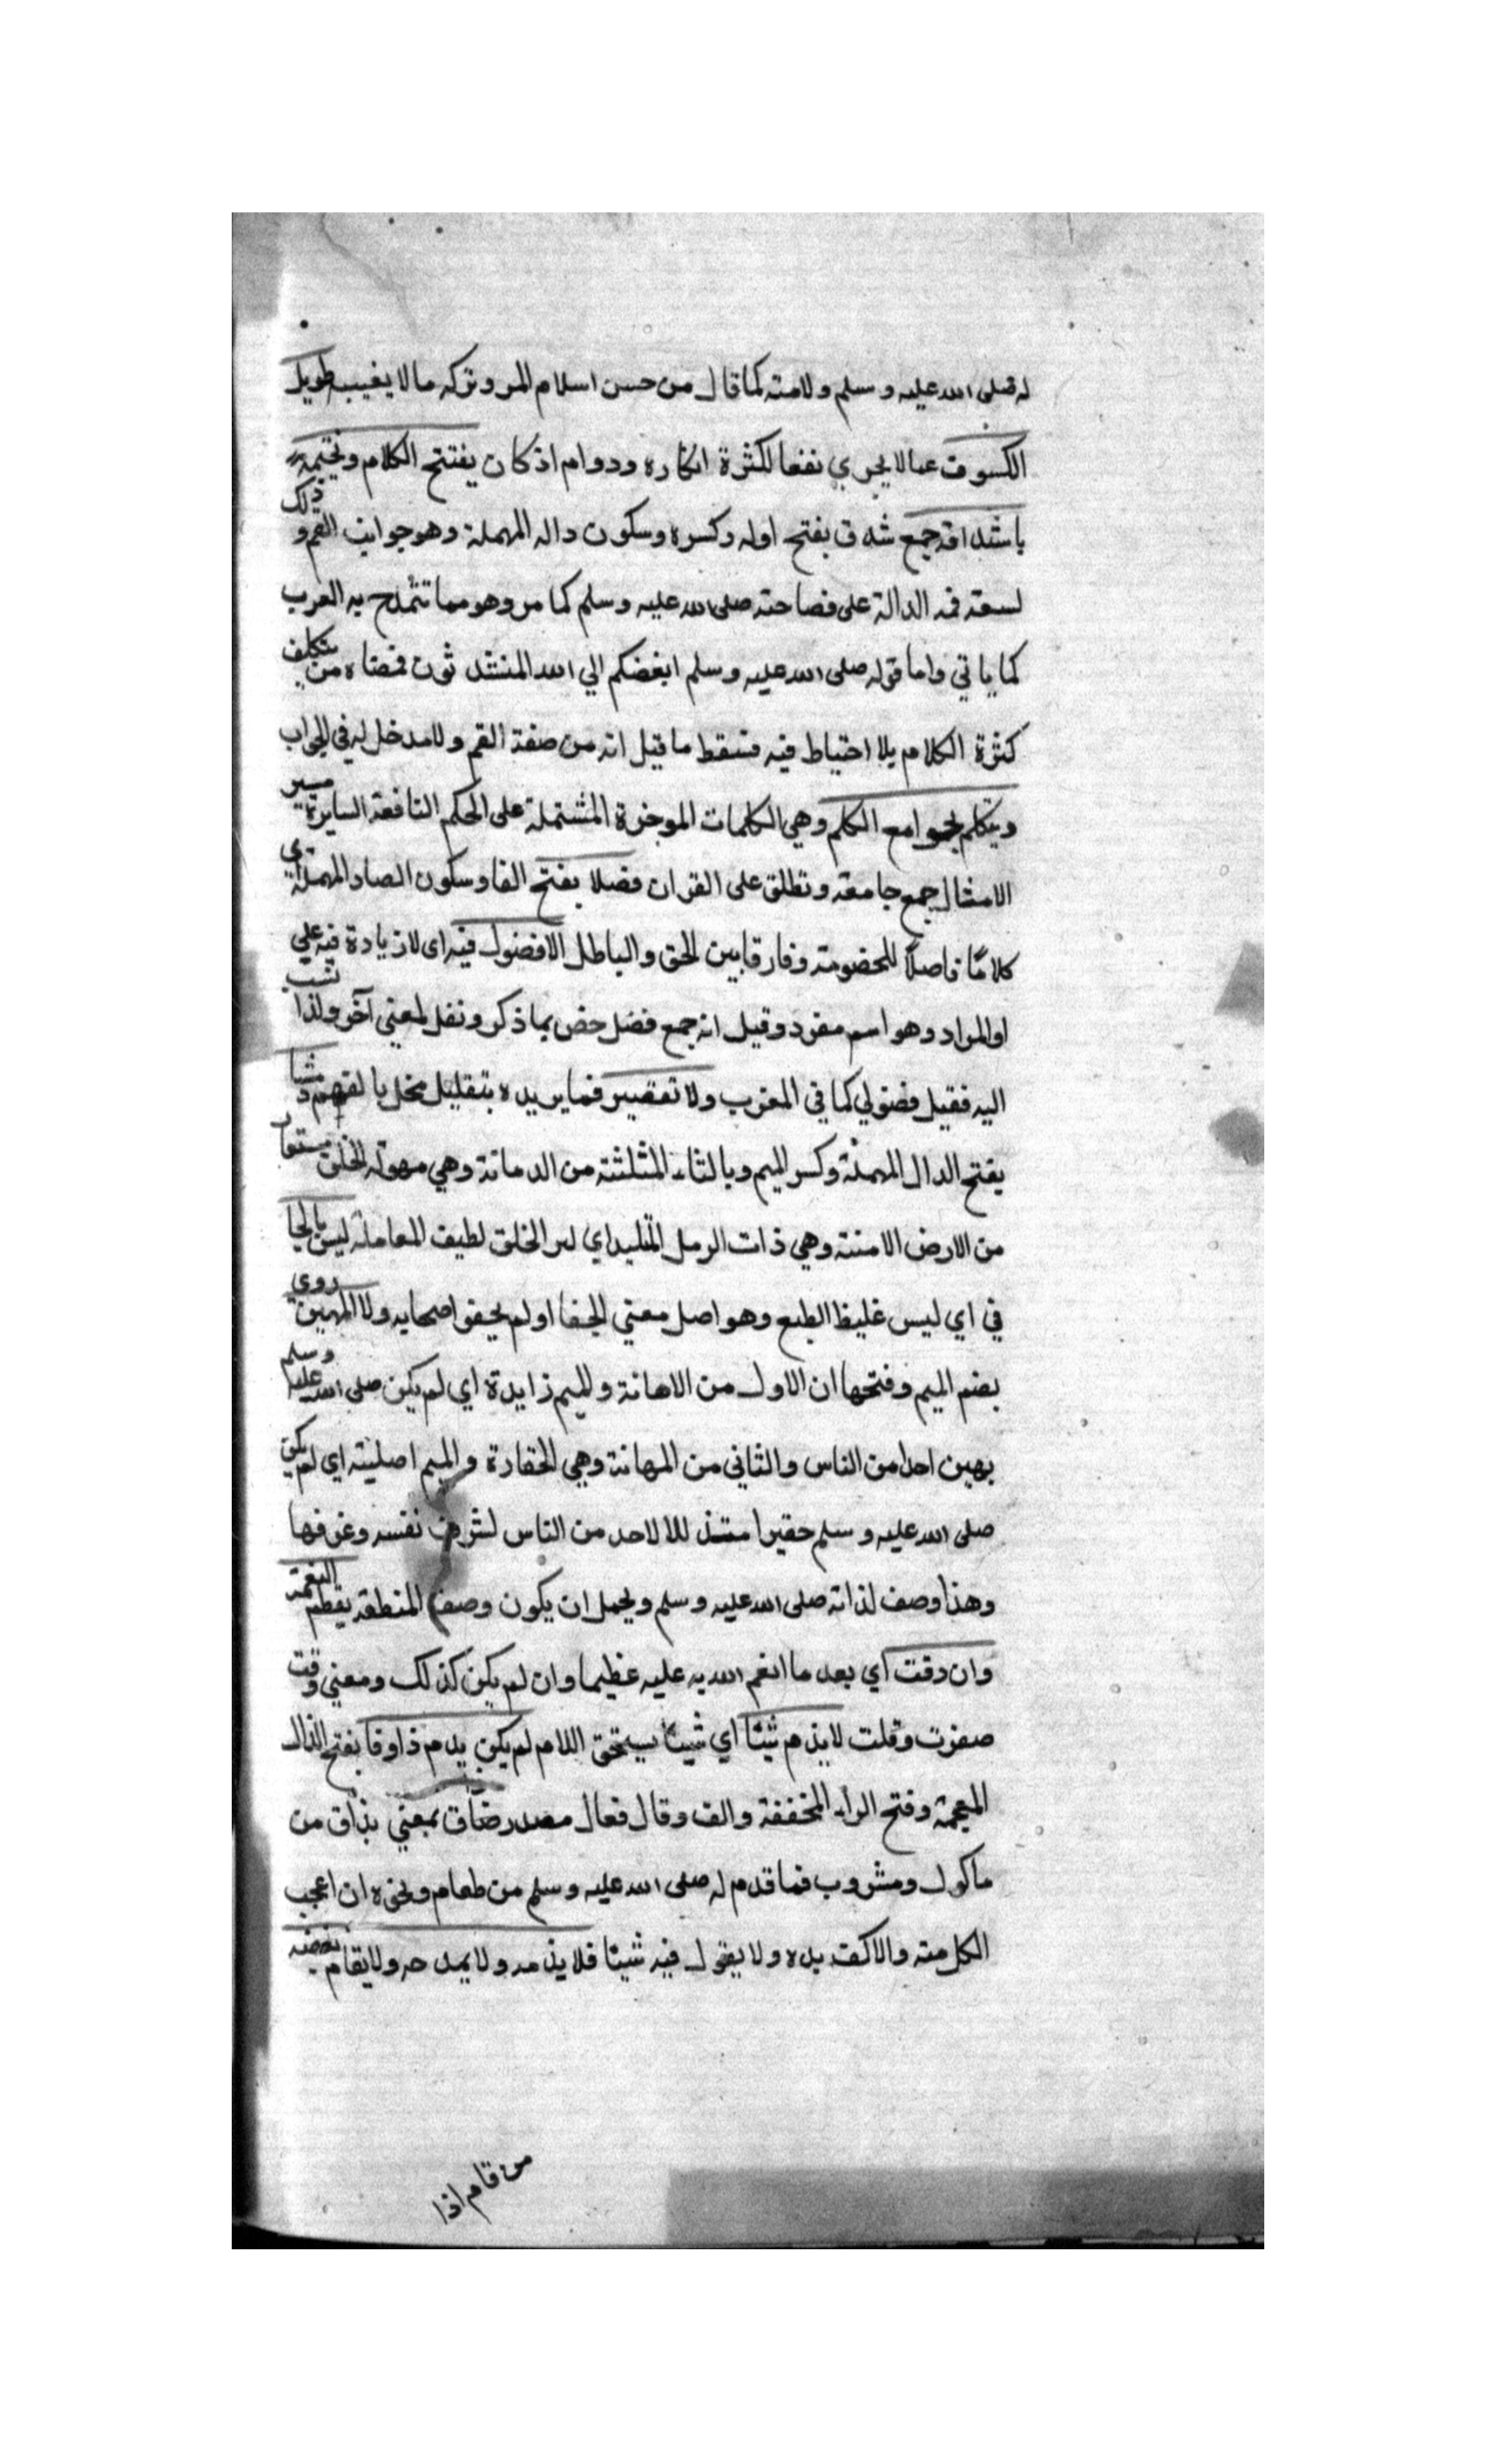 له صلى الله عليه وسلم ولامته كما قال من حسن اسلام المر وتركه ما لا يغيب طويل
الكسوت عما لا يجري نفعا لكثرة انكاره ودوام اذ كان يفتتح الكلام ويختمه
باشداقه جمع شدق بفتح اوله وكسره وسكون داله المهملة وهو جوانب الفم و ذلك
لسعة فمه الدالة على فصاحته صلى الله عليه وسلم كما مر وهو مما تتمدح به العرب
كما ياتي واما قوله صلى الله عليه وسلم ابغضكم الي الله المتشدثون فمعناه من يتكلف
كثرة الكلام بلا احتياط فيه فسقط ما قيل انه من صفة الفم ولا مدخل له في الجواب
ويتكلم بجوامع الكلم وهي الكلمات الموجزة المشتملة على الحكم النافعة السايرة مسير
الامثال جمع جامعة وتطلق على القران فصلا بفتح الفا وسكون الصاد المهملة اي
كلامًا فاصلاً للخصومة وفارقا بين الحق والباطل لا فضول فيه اى لا زيادة فيه علي
او المراد وهو اسم مفرد وقيل انه جمع فضل خص بما ذكر ونقل لمعني آخر ولذا نسب
اليه فقيل فضولي كما في المغرب ولا تقصير فما يريده بتقليل مخل بالفهم دمثا
بفتح الدال المهملة وكسر الميم وبالثاء المثلثة من الدماثة وهي سهولة الخلق مستعار
من الارض الامنثة وهي ذات الرمل المتلبد اي لين الخلق لطيف المعاملة ليس بالجا
في اي ليس غليظ الطبع وهو اصل معني الجفا او لم يجف اصحابه ولا المهين روي
بضم الميم وفتحها ان الاول من الاهانة والميم زايدة اي لم يكن صلى الله عليه وسلم
بهين احدا من الناس والثاني من المهانة وهي الحقارة والميم اصليته اي لم يكن
صلى الله عليه وسلم حقيرا متذللا لاحد من الناس لشرف نفسه وعزفها
وهذا وصف لذاته صلى الله عليه وسلم ويحمل ان يكون وصف المنطقه يعظم النعمة
وان دقت اي بعد ما انعم الله به عليه عظيما وان لم يكن كذلك ومعني دقت
صغرت وقلت لا يذم شيئا اي شيئا يستحق اللام لم يكن يدم ذاوقا بفتح الذال
المعجمة وفتح الراء المخففة والف وقال فعال مصدر ضاق بمعني يذاق من
ماكول ومشروب فما قدم له صلى الله عليه وسلم من طعام ونحوه ان اعجب
اكل منه والا كف يده ولا يقول فيه شيئا فلا يذمه ولا يمدحه ولا يقام بغضبه
من قام اذا